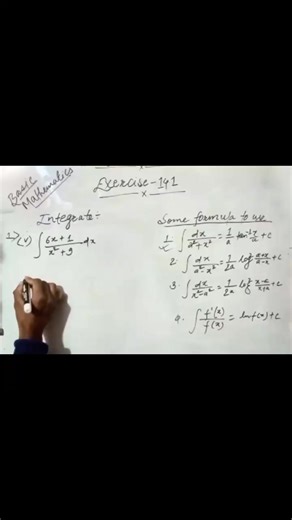 Basic
Mathematics
Exercise-14.1
x
Integrate:
1> (v) ∫ (6x+1)/(x²+9) dx
Some formula to use
1. ∫ dx/(a²+x²) = 1/a tan⁻¹ x/a + c
2. ∫ dx/(a²-x²) = 1/2a log (a+x)/(a-x) + c
3. ∫ dx/(x²-a²) = 1/2a log (x-a)/(x+a) + c
4. ∫ f'(x)/f(x) = ln f(x) + c
x